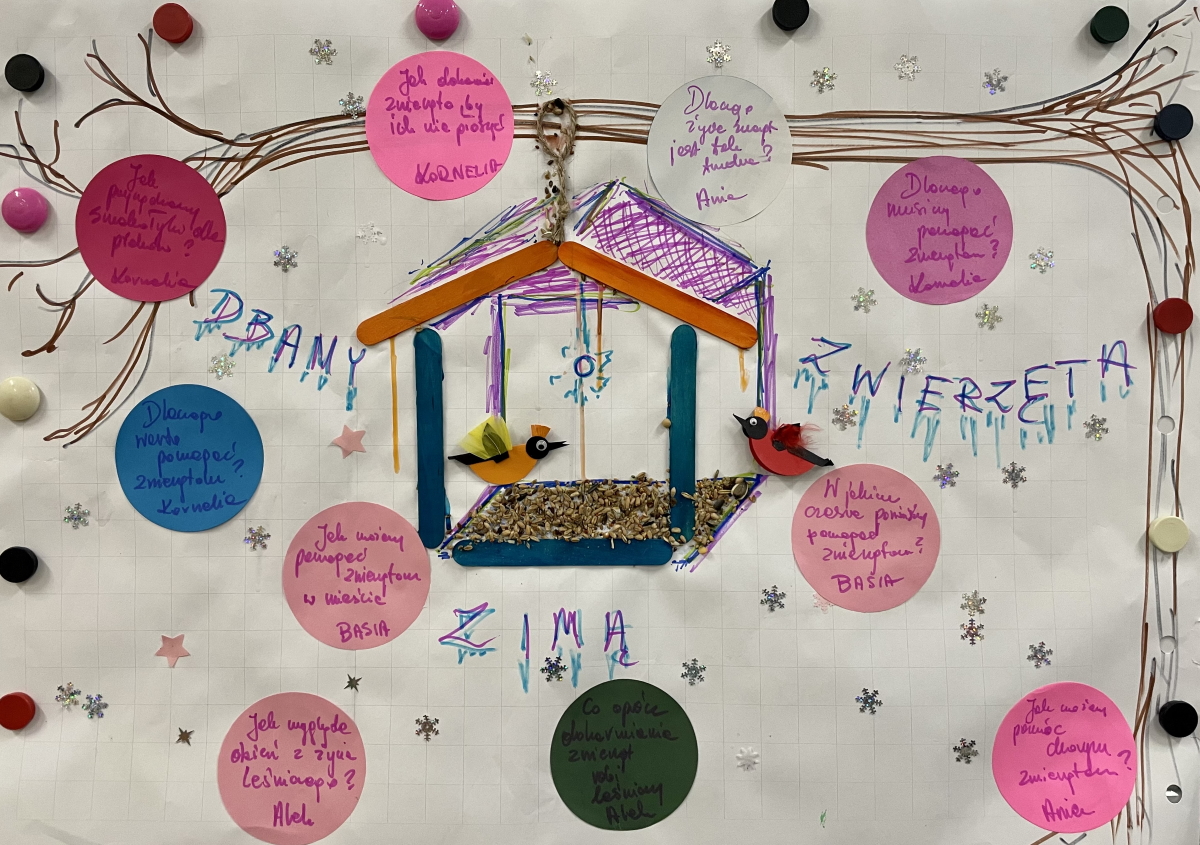 Jak dokarmiać
zwierzęta, by
ich nie
KORNELIA
Dlaczego
życie zwierząt
jest tak
trudne?
Ania
Jak
przysmaków
ptaków?
Kornelia
Dlaczego
musimy
pomagać
zwierzętom?
Kornelia
DBAMY
O
ZWIERZĘTA
Dlaczego
warto
pomagać
zwierzętom?
Kornelia
Jak możemy
pomagać
zwierzętom
w mieście
BASIA
W jakim
czasie powinniśmy
pomagać
zwierzętom?
BASIA
ZIMĄ
Jak wygląda
dzień z życia
leśniczego?
Alek
Co oprócz
dokarmiania
zwierząt
robi
leśniczy
Alek
Jak możemy
pomóc
chorym
zwierzętom?
Ania